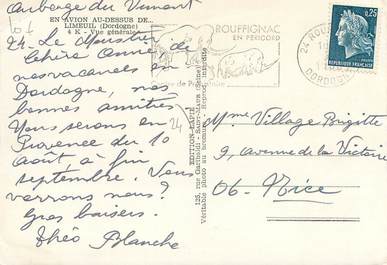 Auberge du Vimont
EN AVION AU-DESSUS DE...
LIMEUIL (Dordogne)
4 K - Vue générale
24. Le Moustier
Chère Amie, de
nos vacances
Dordogne, nos
bonnes amitiés
Nous serons en 24
Provence du 10
août à fin
septembre. Vous
verrons nous?
Gros baisers.
Théo Blanche
EDITION "RAPID"
125, rue Garibaldi - SAINT-MAUR (Seine)
Véritable photo au bromure - Reprod. interdite
ROUFFIGNAC
EN PERIGORD
24 ROU
DORDOGNE
0,25
REPUBLIQUE FRANCAISE
Mme Village Brigitte
9, avenue de la Victoire
06. Nice